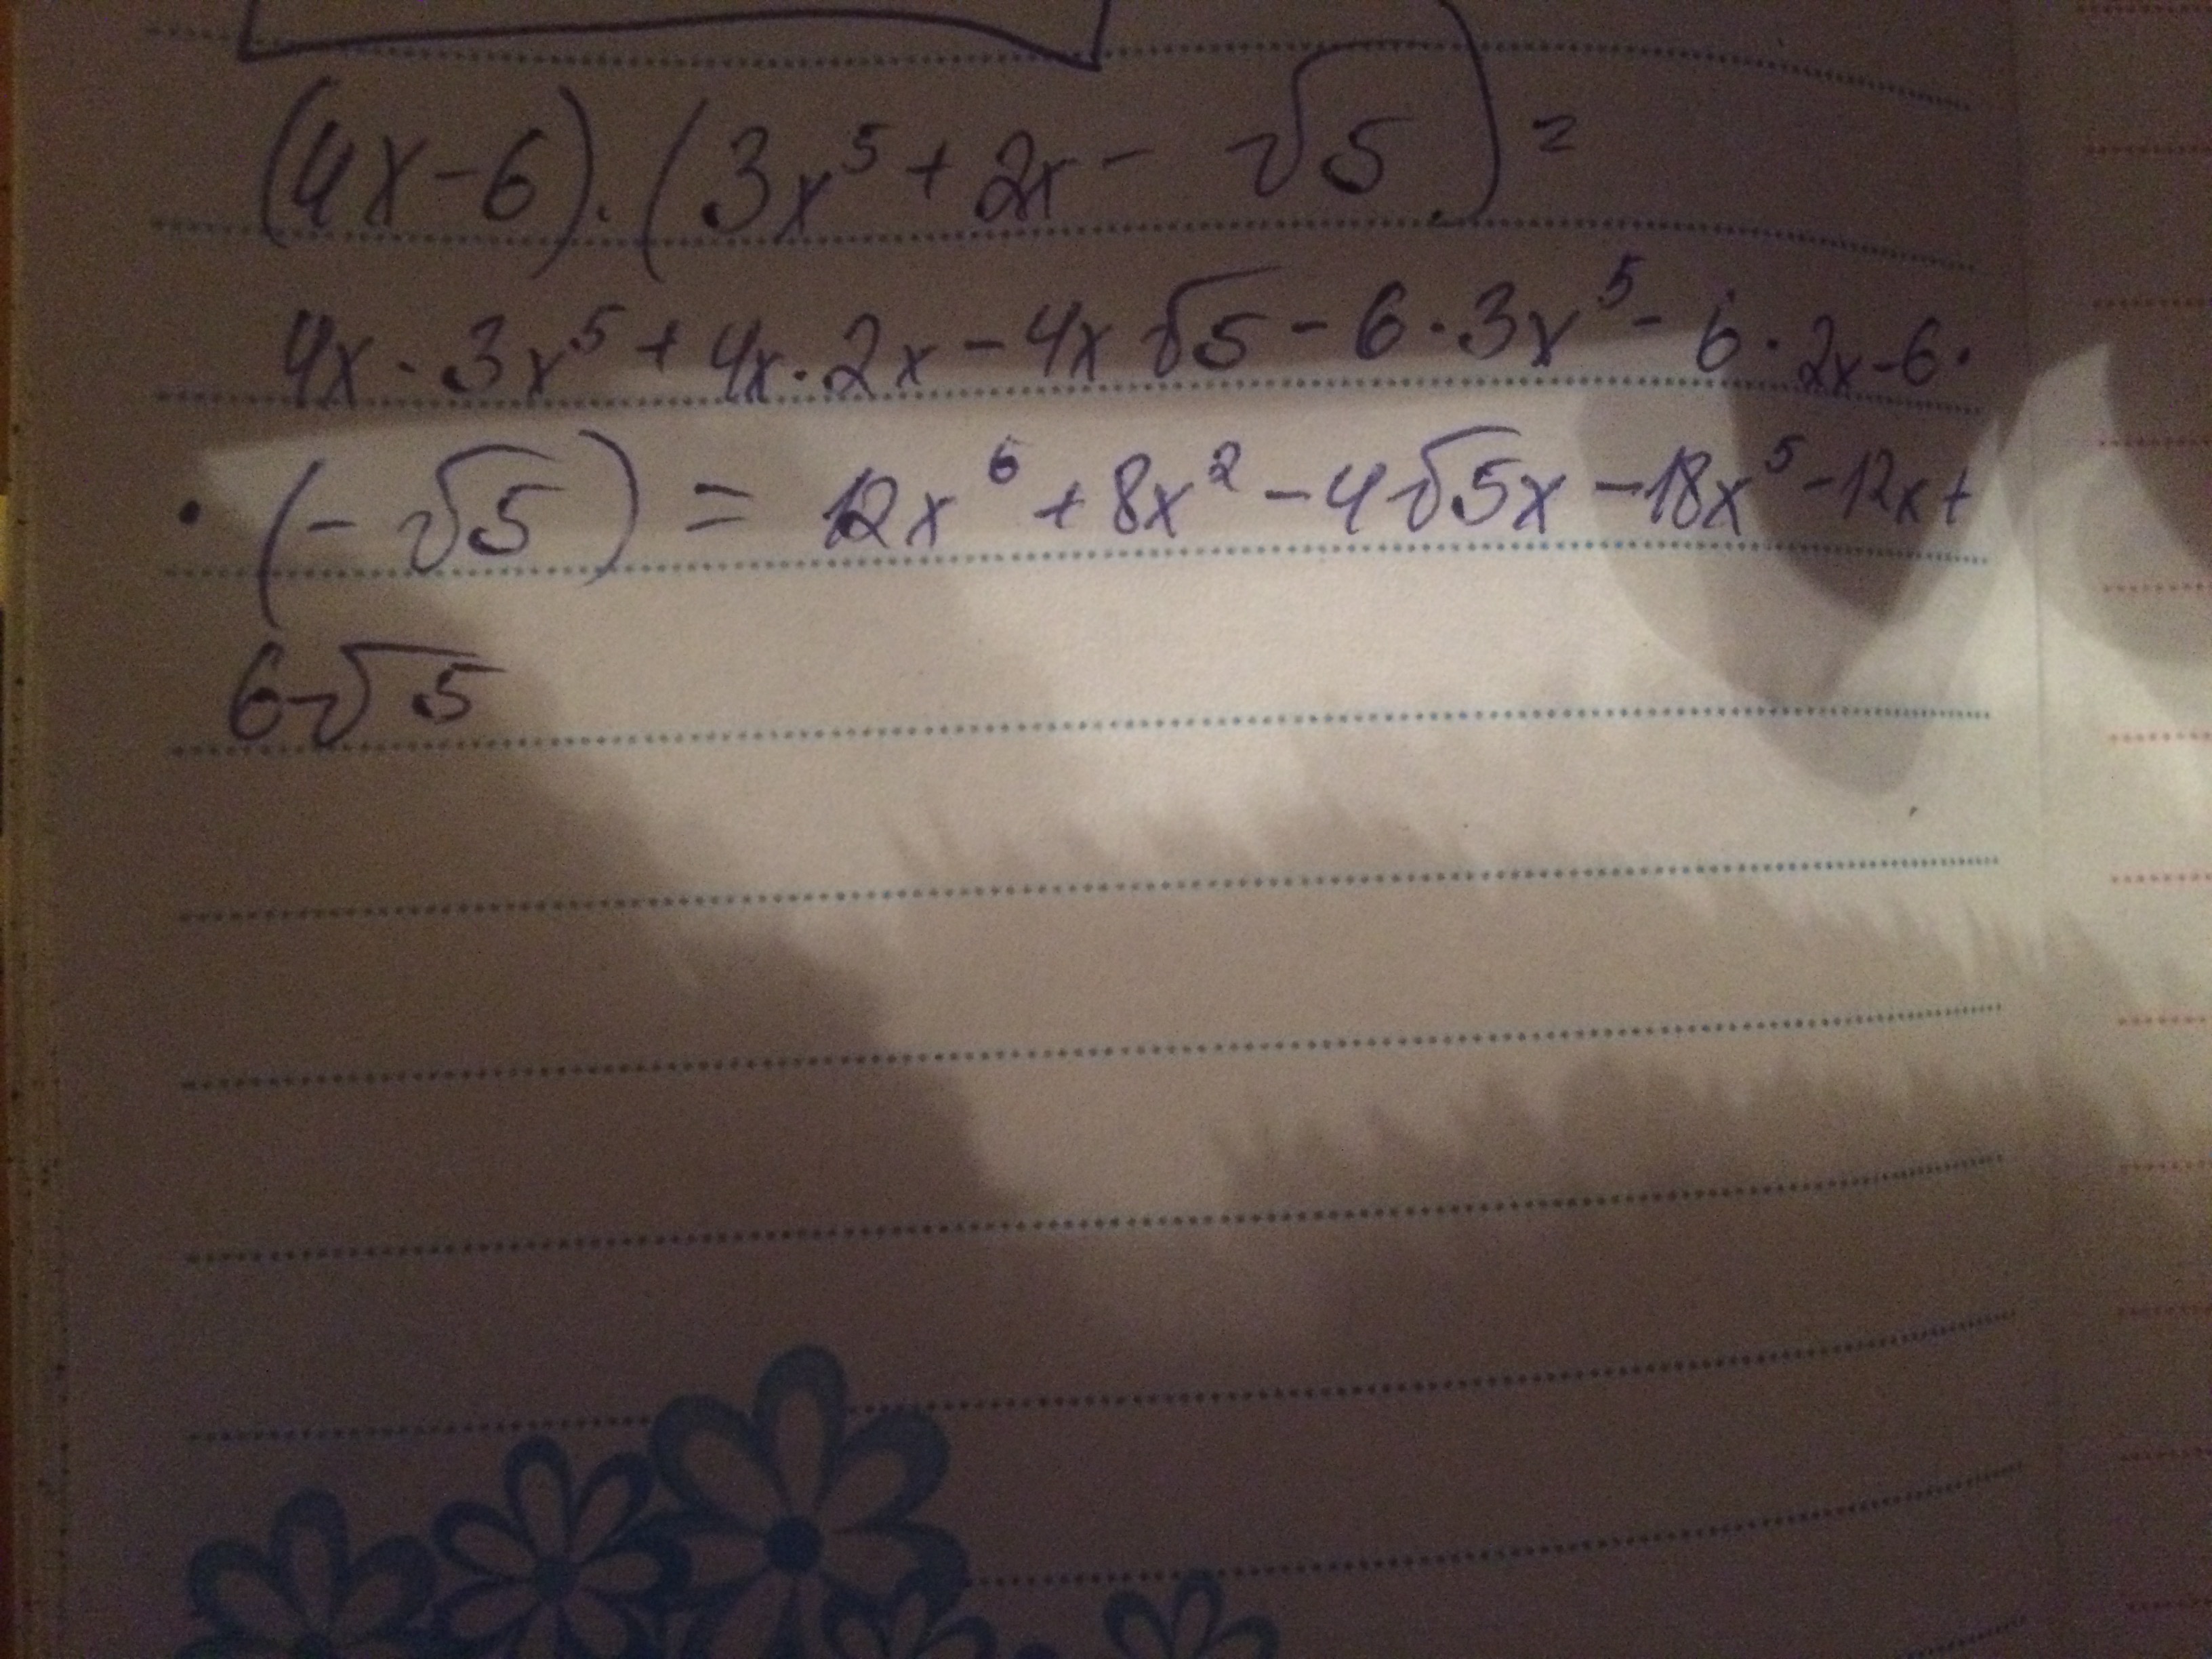 (4x-6).(3x⁵+2x-√5)=
4x·3x⁵+4x·2x-4x√5-6·3x⁵-6·2x-6·
·(-√5)=12x⁶+8x²-4√5x-18x⁵-12x+
6√5